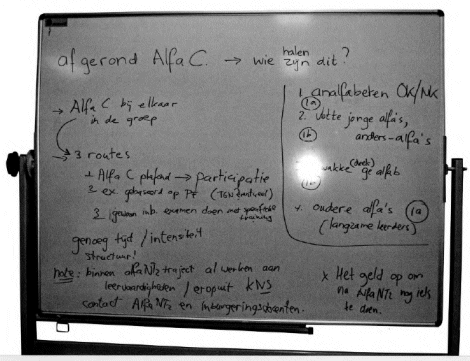 afgerond Alfa C. → wie halen zijn dit?
→ Alfa C bij elkaar
in de groep
→ 3 routes
1 Alfa C plafond → participatie
2 ex gebaseerd op PF
3 gewoon inb. examen doen met specifieke training
genoeg tijd / intensiteit
structuur!
Note: binnen alfa NT2 traject al werken aan
leervaardigheden / eropuit KNS
contact Alfa NT2 en Inburgeringsdocenten.
1 analfabeten OK/NK
1a
2. Vlotte jonge alfa's,
1b anders-alfa's
vakke (deels) ge alfab
4. oudere alfa's 1a
(langzame leerders)
x Het geld op om
na Alfa NT2 nog iets
te doen.